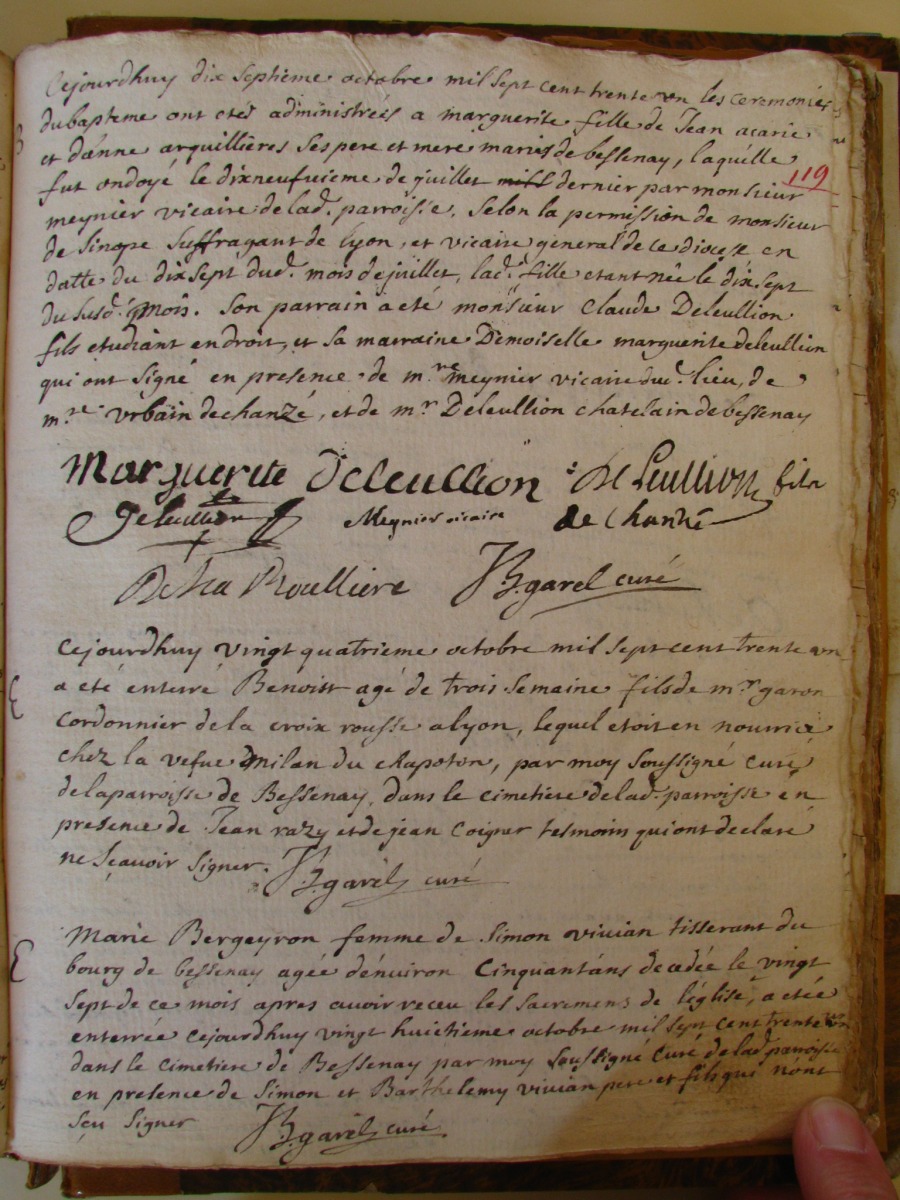 Cejourdhuy dix septieme octobre mil sept cent trente un les ceremonies
du bapteme ont etés administrées a marguerite fille de Jean acarie
et d'anne arquillieres ses pere et mere mariés de bessenay, laquelle
fut ondoyé le dixneufvieme de juillet dernier par monsieur
119
meynier vicaire de lad. parroisse, selon la permission de monsieur
de Sinope Suffragant de lyon, et vicaire general de ce diocese en
datte du dix sept dud. mois de juillet, lad. fille etant née le dix sept
du susd. mois. Son parrain a eté monsieur Claude Deleullion
fils etudiant en droit, et sa marraine Demoiselle marguerite deleullion
qui ont signé en presence de m.re meynier vicaire dud. lieu, de
m.re urbain de chanzé, et de m.r Deleullion chatelain de bessenay
Marguerite Deleullion De Leullion fils
Deleullion Meynier vicaire de Chanzé
De la Roulliere JB garel curé
Cejourdhuy vingt quatrieme octobre mil sept cent trente un
a été enterré Benoist agé de trois semaine fils de m.r garon
cordonnier de la croix rousse a lyon, lequel etoit en nourrice
chez la vefue milan du chapoton, par moy soussigné curé
de la parroisse de Bessenay, dans le cimetiere de lad. parroisse en
presence de Jean razy et de jean Coignet tesmoins qui ont declaré
ne sçauoir signer. JB garel curé
Marie Bergeyron femme de Simon vivian tisserant du
bourg de bessenay agée d'enuiron Cinquant'ans decedée le vingt
sept de ce mois apres auoir receu les sacremens de l'église, a etée
enterrée cejourdhuy vingt huictieme octobre mil sept cent trente un
dans le cimetiere de Bessenay par moy soussigné Curé de lad. parroisse
en presence de Simon et Barthelemy vivian pere et fils qui n'ont
sçu signer JB garel curé